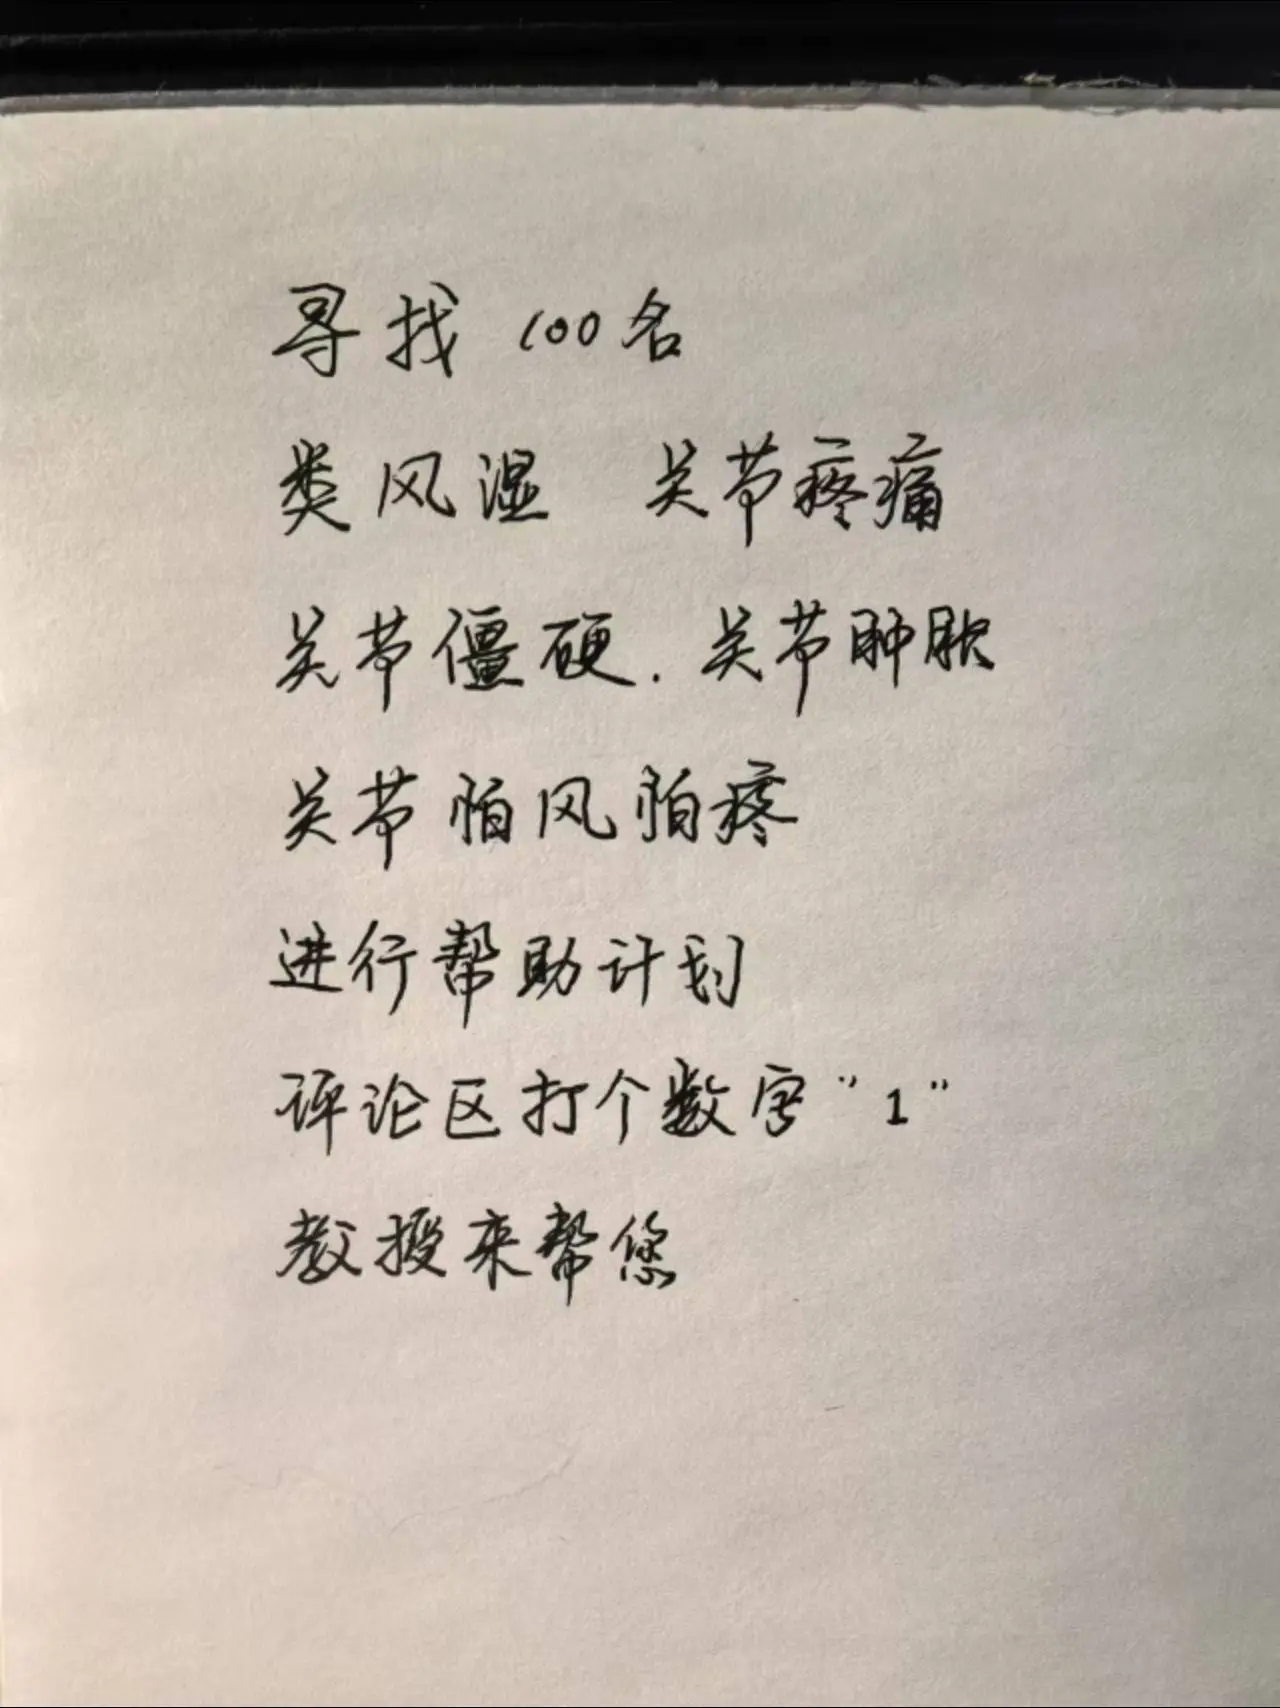 寻找 100名
类风湿 关节疼痛
关节僵硬.关节肿胀
关节怕风怕疼
进行帮助计划
评论区打个数字"1"
教授来帮您